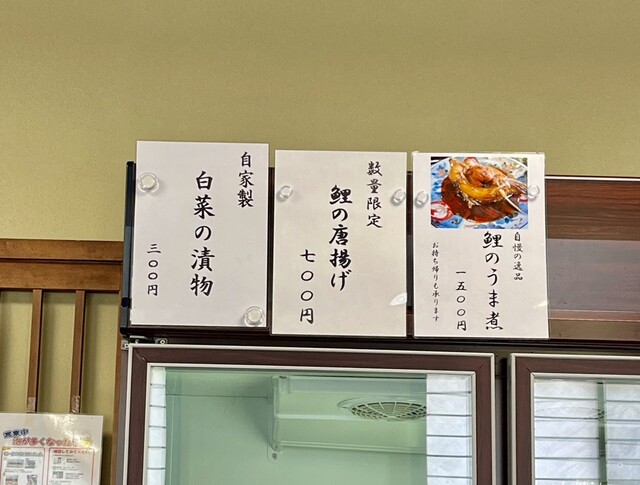 自家製
白菜の漬物
三〇〇円
数量限定
鯉の唐揚げ
七〇〇円
自慢の逸品
鯉のうま煮
一五〇〇円
お持ち帰りも承ります